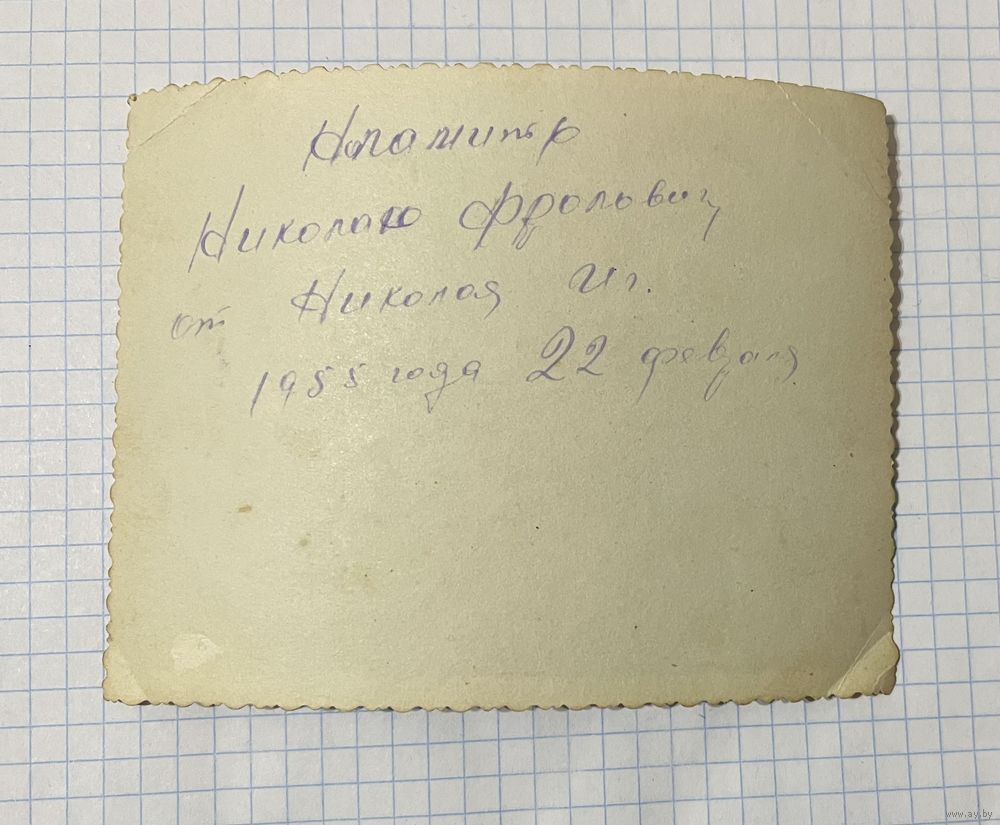 На памить
Николаю Фролович
от Николая Иг.
1955 года 22 февраля
www.ay.by